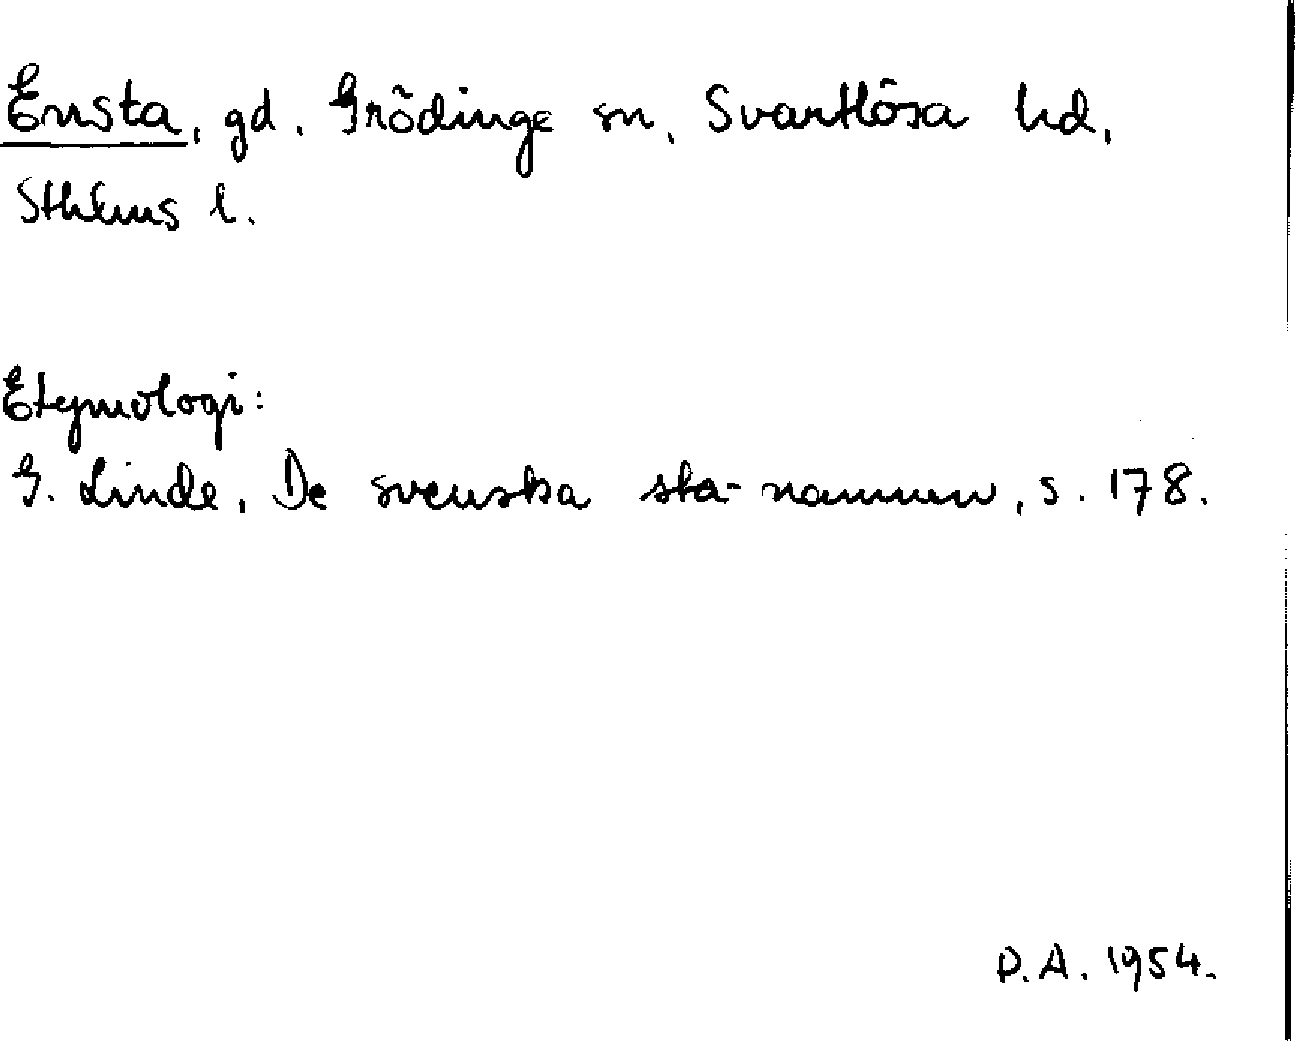 Ensta, gd, Grödinge sn, Svartlösa hd,
Sthlms l.
Etymologi:
G. Linde, De svenska sta-namnen, s. 178.
D.A. 1954.